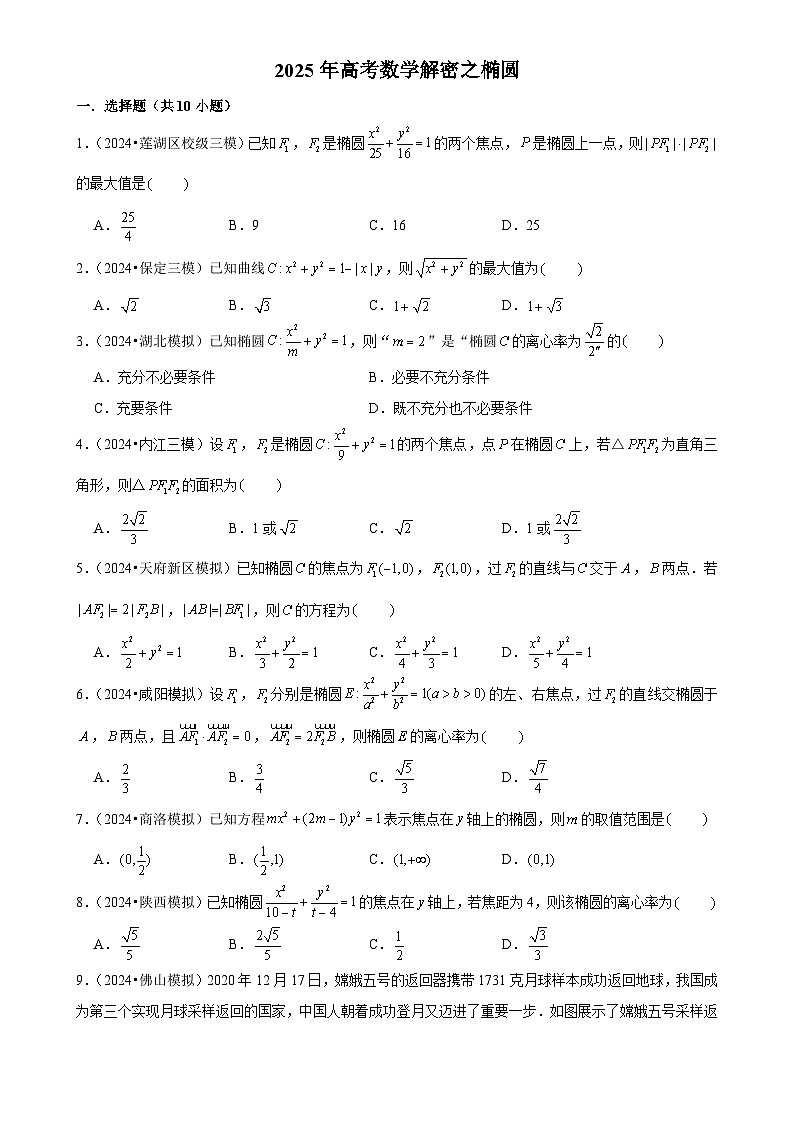 2025 年高考数学解密之椭圆
一．选择题（共 10 小题）
1.（2024•莲湖区校级三模）已知 F₁，F₂是椭圆 x²/25 + y²/16 = 1 的两个焦点，P 是椭圆上一点，则 | PF₁ | · | PF₂ |
的最大值是(　　)
A．25/4 B．9 C．16 D．25
2.（2024•保定三模）已知曲线 C : x² + y² = 1− | x | y，则 √(x² + y²) 的最大值为(　　)
A．√2 B．√3 C．1+ √2 D．1+ √3
3.（2024•湖北模拟）已知椭圆 C : x²/m + y² = 1，则“ m = 2 ”是“椭圆 C 的离心率为 √2/2″ 的(　　)
A．充分不必要条件 B．必要不充分条件
C．充要条件 D．既不充分也不必要条件
4.（2024•内江三模）设 F₁，F₂是椭圆 C : x²/9 + y² = 1 的两个焦点，点 P 在椭圆 C 上，若△ PF₁F₂ 为直角三
角形，则△ PF₁F₂ 的面积为(　　)
A．2√2/3 B．1 或 √2 C．√2 D．1 或 2√2/3
5.（2024•天府新区模拟）已知椭圆 C 的焦点为 F₁(−1,0)，F₂(1,0)，过 F₂ 的直线与 C 交于 A，B 两点．若
| AF₂ |= 2 | F₂B |，| AB |=| BF₁ |，则 C 的方程为(　　)
A．x²/2 + y² = 1 B．x²/3 + y²/2 = 1 C．x²/4 + y²/3 = 1 D．x²/5 + y²/4 = 1
6.（2024•咸阳模拟）设 F₁，F₂分别是椭圆 E : x²/a² + y²/b² = 1(a > b > 0) 的左、右焦点，过 F₂ 的直线交椭圆于
A，B 两点，且 AF₁ · AF₂ = 0，AF₂ = 2F₂B，则椭圆 E 的离心率为(　　)
A．2/3 B．3/4 C．√5/3 D．√7/4
7.（2024•商洛模拟）已知方程 mx² + (2m − 1)y² = 1 表示焦点在 y 轴上的椭圆，则 m 的取值范围是(　　)
A．(0, 1/2) B．(1/2, 1) C．(1, +∞) D．(0,1)
8.（2024•陕西模拟）已知椭圆 x²/(10 − t) + y²/(t − 4) = 1 的焦点在 y 轴上，若焦距为 4，则该椭圆的离心率为(　　)
A．√5/5 B．2√5/5 C．1/2 D．√3/3
9.（2024•佛山模拟）2020 年 12 月 17 日，嫦娥五号的返回器携带 1731 克月球样本成功返回地球，我国成
为第三个实现月球采样返回的国家，中国人朝着成功登月又迈进了重要一步．如图展示了嫦娥五号采样返